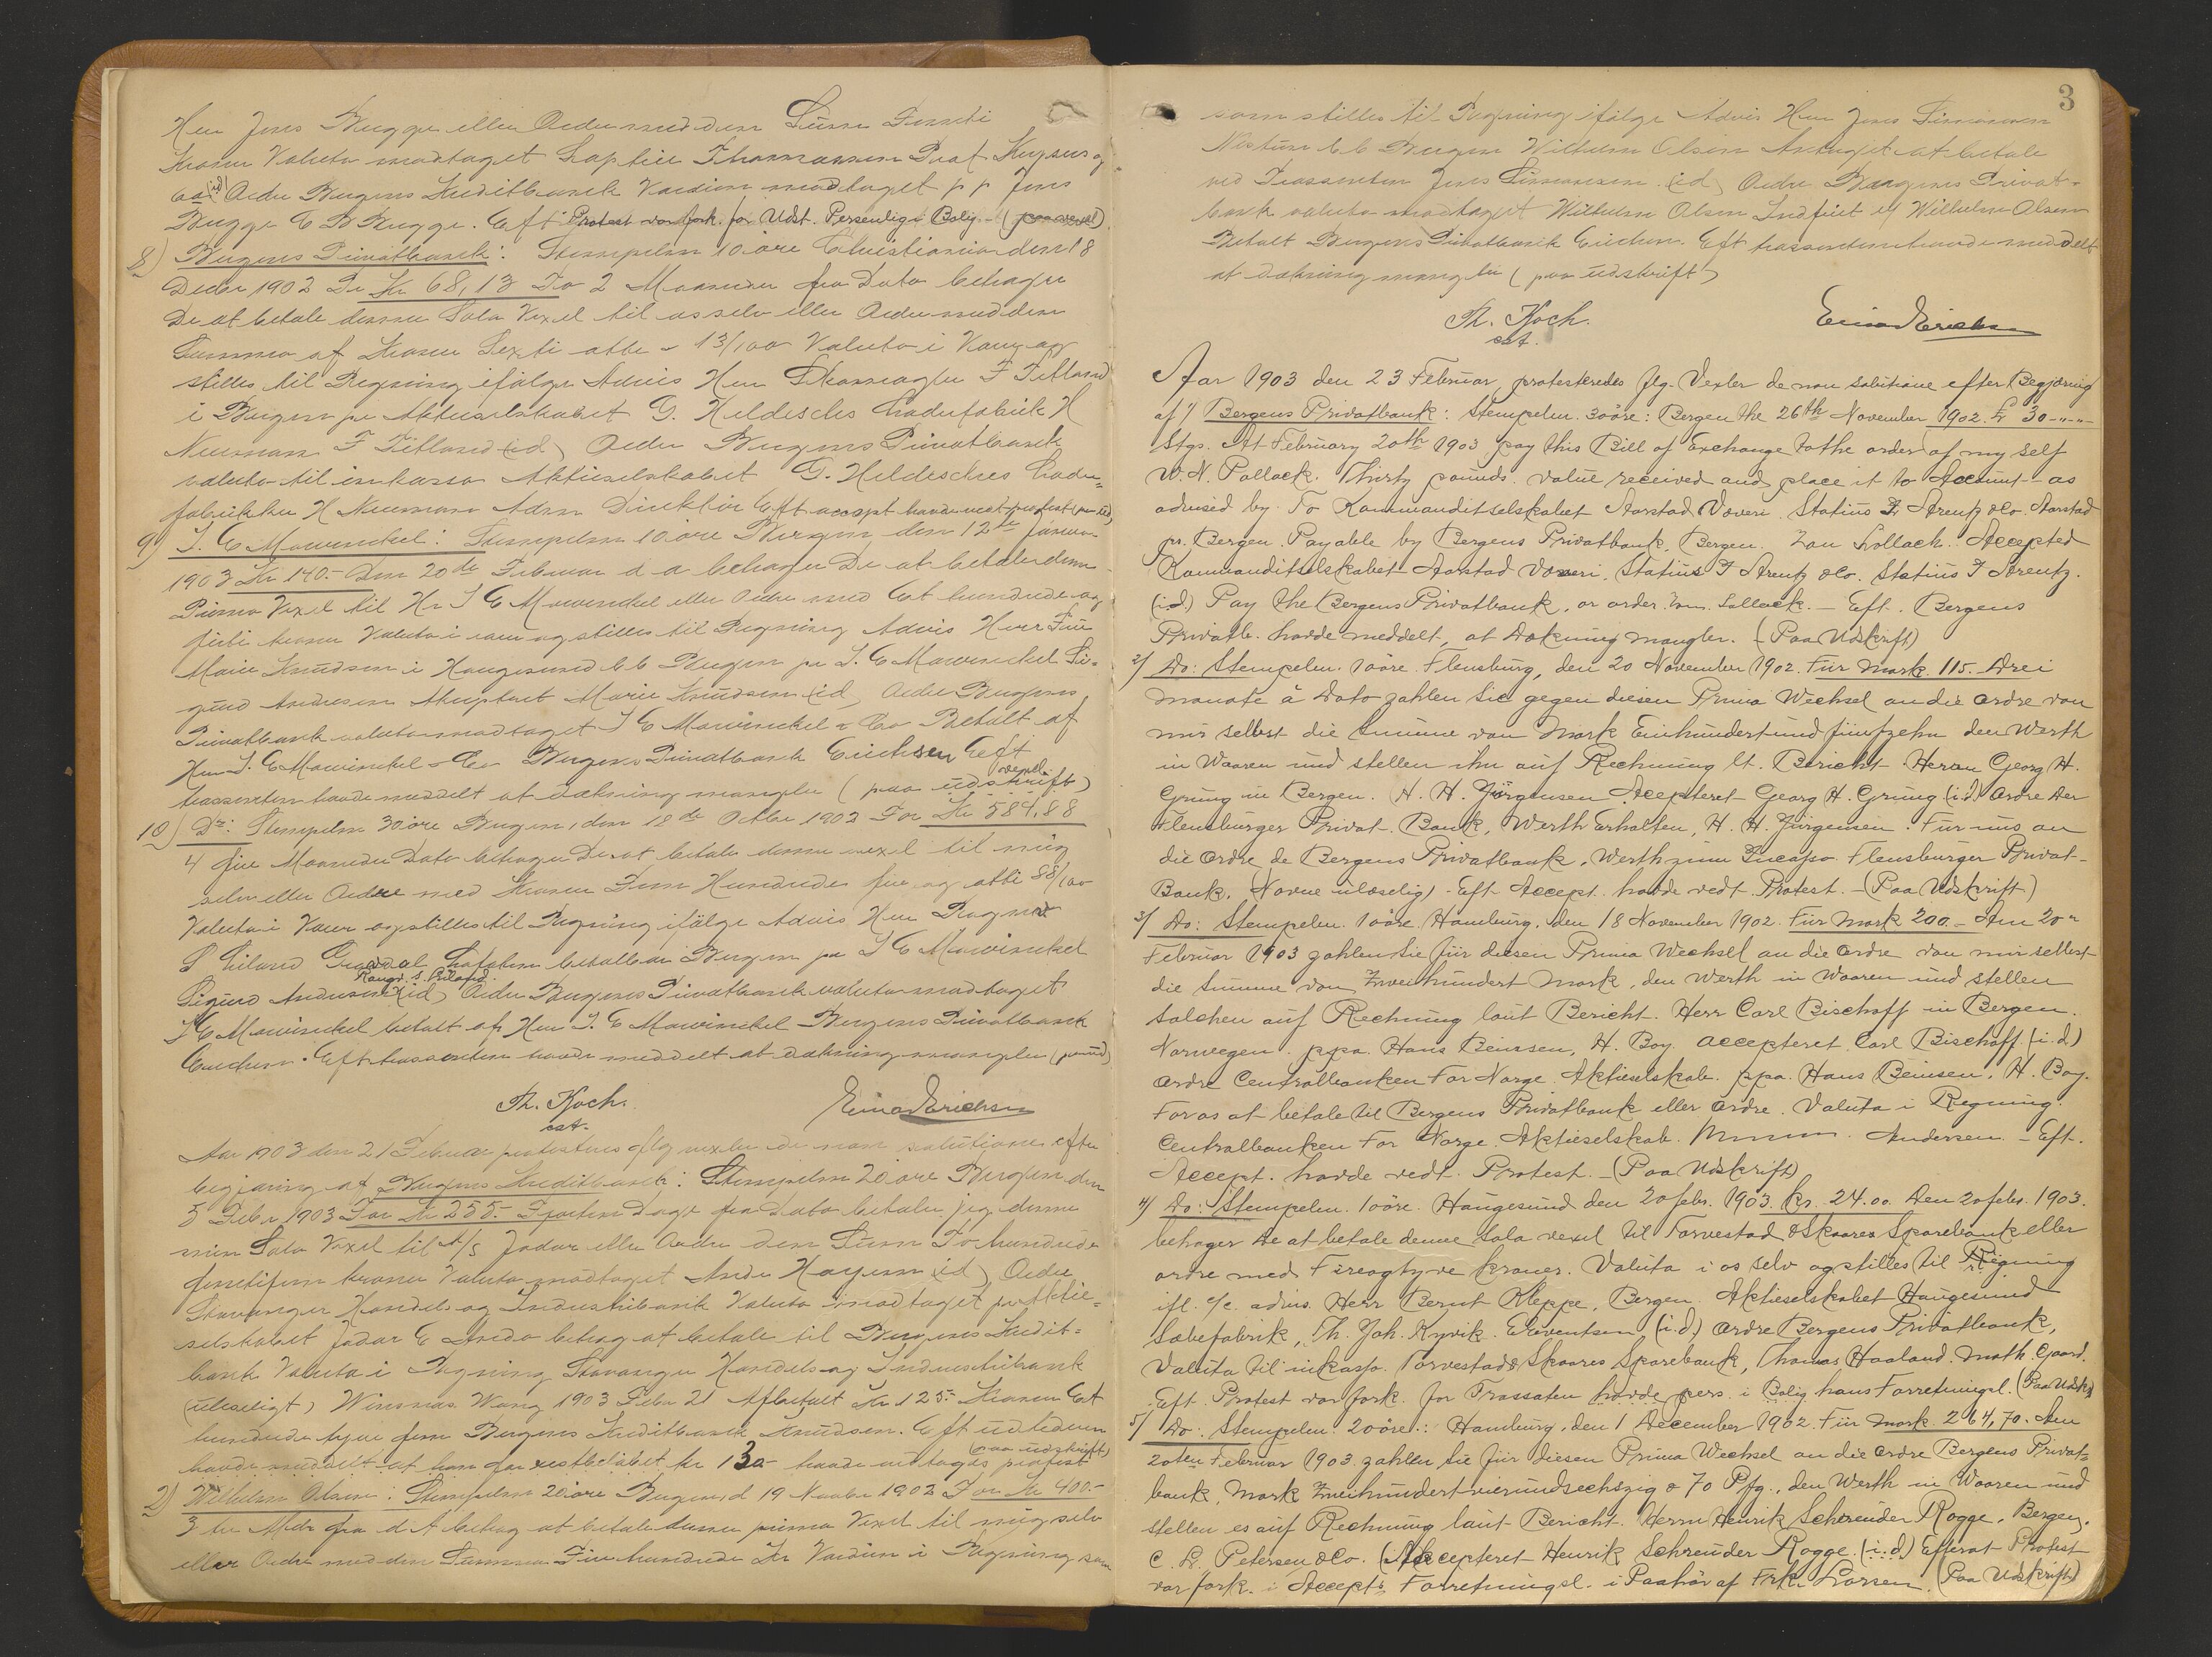 Herr Jens Bugge eller Ordre med den Sum Femti
Kroner Valuta modtaget Kaptein Thomassen Olaf Kysus og
Co (id) Ordre Bergens Kreditbank Værdien modtaget pp Jens
Bugge C B Bugge. Eft Protest var fork. for Udst. Personlige Bolig - (paa vexel)
8) Bergens Privatbank: Stempelen 10 øre Christiania den 18
Decbr 1902 Pr Kr 68,13 To 2 Maaneder fra Dato behager
De at betale denne Sola Vexel til os selv eller Ordre med den
Summa af Kroner Sexti otte - 13/100 Valuta i Varer og
stilles til Regning ifølge Advis Herr Skomager F Fitland
i Bergen pr Aktieselskabet G. Heldeschs Laderfabrik H
Neumann F Fitland (id) Ordre Bergens Privatbank
valuta til inkasso Aktieselskabet G. Heldesches Lader=
fabrikker H Neumann Adm Direktør Eft accept havde vedt protest (paa ud)
9) J. E Mowinckel: Stempelen 10 øre Bergen, den 12te Januar
1903 Kr 140.- Den 20de Februar d a behager De at betale denne
Prima Vexel til Hr J E Mowinckel eller Ordre med Et hundrede og
firti kroner Valuta i varer og stilles til Regning Advis Herr Fru
Marie Knudsen i Haugesund b b Bergen pr J. E Mowinckel Si=
gurd Andresen Akcepteret Marie Knudsen (id) Ordre Bergens
Privatbank valuta modtaget J E Mowinckel & Co Betalt af
Herr J. E Mowinckel & Co Bergens Privatbank Erichsen Eeft
trassenten havde meddelt at dækning mangler (paa udskrift) vexel
10) Do: Stempelen 30 øre Bergen, den 18de Octbr 1902 For Kr 584,88
4 fire Maaneder Dato behager De at betale denne vexel til mig
selv eller Ordre med Kroner Fem Hundrede fire og otti 88/100
Valuta i Varer og stilles til Regning ifølge Advis Herr Ragnar
S Eiland betalbar i Bergen pr J E Mowinckel
Sigurd Andresen Rangv. S. Eiland (id) Ordre Bergens Privatbank valuta modtaget
J E Mowinckel betalt af Herr J. E Mowinckel Bergens Privatbank
Erichsen. Eft trassenten havde meddelt at dækning mangler (paa ud)
Th. Koch. Einar Erichsen
cst.
Aar 1903 den 21 Februar protesteres flg vexler de non solutione efter
begjæring af Bergens Kreditbank: Stempelen 20 øre Bergen den
5 Febr 1903 For Kr 255.- Fjorten Dage fra Dato betaler jeg denne
min Sola Vexel til A/S Jadar eller Ordre den Sum To hundrede
femtifem kroner Valuta modtaget Andr Hagesen (id) Ordre
Stavanger Handels og Industribank Valuta modtaget pr Aktie=
selskabet Jadar E Andr behag at betale til Bergens Kredit=
bank Valuta i Regning Stavanger Handels og Industribank
(ulæseligt) Winsnes Wang 1903 Febr 21 Afbetalt Kr 125.- Kroner Et
hundrede tyve fem Bergens Kreditbank Knudsen. Eft udstederen
havde meddelt at han for restbeløbet kr 130 havde modtages protest (paa udskrift)
2) Wilhelm Olsen: Stempelen 20 øre Bergen, d 19 Novbr 1902 For Kr 400.-
3 tre Mdr fra d.d behag at betale denne prima Vexel til mig selv
eller Ordre med den Summa Fire hundrede Kr Værdien i Regning som
3
som stilles til Regning ifølge Advis Herr Jens Simonsen
Næstun b b Bergen Wilhelm Olsen Antaget at betale
ved Trassenten Jens Simonsen (id) Ordre Bergens Privat-
bank valuta modtaget Wilhelm Olsen Indfriet af Wilhelm Olsen
Betalt Bergens Privatbank Erichsen. Eft trassenten havde meddelt
at dækning mangler (paa udskrift)
Th. Koch. Einar Erichsen
cst.
Aar 1903 den 23 Februar protesteredes flg. Vexler de non solutione efter Begjæring
af 1/ Bergens Privatbank: Stempelen. 30 øre: Bergen the 26th November 1902. £ 30-"-"-
Stgs. At February 20th 1903 pay this Bill of Exchange to the order of my self
W. N. Pollack. Thirty pounds. value received and place it to Account - as
advised by. To Kommanditselskabet Aarstad Væveri. Statius F. Arentz & Co. Aarstad
pr. Bergen. Payable by Bergens Privatbank, Bergen. Accepted
Kommanditselskabet Aarstad Væveri. Statius F Arentz & Co. Statius F Arentz.
(i.d.) Pay the Bergens Privatbank, or order. - Eft. Bergens
Privatb. havde meddelt, at Dækning mangler. - (Paa Udskrift)
2/ Do: Stempelen. 10 øre. Flensburg, den 20 November 1902. Für Mark 115. Drei
monate à Dato zahlen Sie gegen diesen Prima Wechsel an die Ordre von
mir selbst die Summe von Mark Einhundertundfünfzehn den Werth
in Waaren und stellen ihn auf Rechnung lt. Bericht. Herrn Georg H.
Grung in Bergen. H. H. Jürgensen Accepteret Georg H. Grung (i.d) Ordre der
Flensburger Privat-Bank, Werth Erhalten, H. H. Jürgensen. Für uns an
die Ordre de Bergens Privatbank, Werth zum Incasso Flensburger Privat-
Bank. (Navne ulæselig) - Eft. Accept. havde vedt. Protest. - (Paa Udskrift)
3/ Do: Stempelen. 10 øre. Hamburg, den 18 November 1902. Für Mark 200.- Am 20n
Februar 1903 zahlen Sie für diesen Prima Wechsel an die Ordre von mir selbst
die Summe von Zweihundert Mark, den Werth in Waaren und stellen
solchen auf Rechnung laut Bericht. Herr Carl Bischoff in Bergen.
Norwegen. ppa. Hans Beinsen, H. Boy. accepteret. Carl Bischoff. (i.d)
Ordre Centralbanken For Norge. Aktieselskab. ppa. Hans Beinsen, H. Boy.
For os at betale til Bergens Privatbank eller Ordre. Valuta i Regning.
Centralbanken For Norge. Aktieselskab. Andersen. - Eft.
Accept. havde vedt. Protest. - (Paa Udskrift)
4/ Do: Stempelen. 10 øre. Haugesund den 20 febr. 1903. Kr. 24.00 Den 20 febr. 1903.
behager De at betale denne Sola vexel til Torvestad & Skaares Sparebank eller
ordre med Fireogtyve kroner. Valuta i os selv og stilles til Regning
ifl. c/c. advis. Herr Bernt Kleppe, Bergen. Aktieselskabet Haugesund
Sæbefabrik, Th. Joh. Kyvik. Eleventsen (i.d) Ordre Bergens Privatbank,
Valuta til inkasso. Torvestad & Skaares Sparebank, Thomas Haaland. Math. Gaard.
Eft. Protest var fork. for Trassaten havde pers. i Bolig hans Forretningsl. (Paa Udskr)
5/ Do: Stempelen. 20 øre.: Hamburg, den 1 December 1902. Für Mark 264,70. Am
20ten Februar 1903 zahlen Sie für diesen Prima Wechsel an die Ordre Bergens Privat=
bank, Mark Zweihundertvierundsechszig & 70 Pfg., den Werth in Waaren und
stellen es auf Rechnung laut Bericht. Herrn Henrik Schreuder Rogge, Bergen.
C. L. Petersen & Co. Accepteret Henrik Schreuder Rogge. (i.d) Efterat Protest
var fork. i Accept's Forretningsl. i Paahør af Frk. Larsen. (Paa Udskrift)